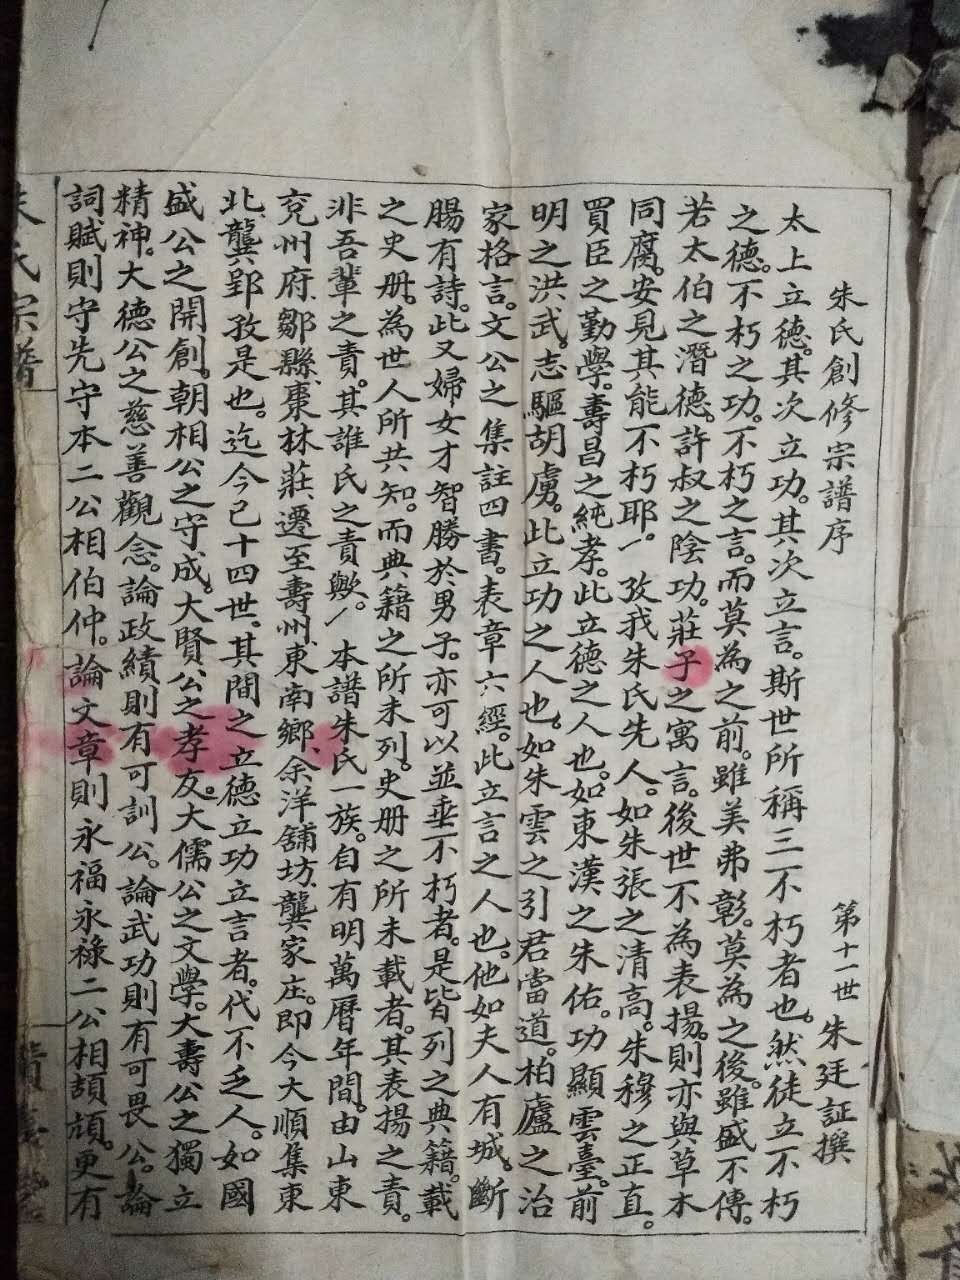 朱氏創修宗譜序
第十一世 朱廷証撰
太上立德。其次立功。其次立言。斯世所稱三不朽者也。然徒立不朽
之德。不朽之功。不朽之言。而莫為之前。雖美弗彰。莫為之後。雖盛不傳。
若太伯之潛德。許叔之陰功。莊子之寓言。後世不為表揚。則亦與草木
同腐。安見其能不朽耶。 攷我朱氏先人。如朱張之清高。朱穆之正直。
買臣之勤學。壽昌之純孝。此立德之人也。如東漢之朱佑。功顯雲臺。前
明之洪武。志驅胡虜。此立功之人也。如朱雲之引君當道。柏廬之治
家格言。文公之集註四書。表章六經。此立言之人也。他如夫人有城。斷
腸有詩。此又婦女才智勝於男子。亦可以並垂不朽者。是皆列之典籍。載
之史册。為世人所共知。而典籍之所未列。史册之所未載者。其表揚之責。
非吾輩之責。其誰氏之責歟。 本譜朱氏一族。自有明萬曆年間。由山東
兗州府、鄒縣、棗林莊、遷至壽州、東南鄉、余洋舖坊、龔家庄。即今大順集東
北、龔郢孜是也。迄今已十四世。其間之立德立功立言者。代不乏人。如國
盛公之開創。朝相公之守成。大賢公之孝友。大儒公之文學。大壽公之獨立
精神。大德公之慈善觀念。論政績則有可訓公。論武功則有可畏公。論
詞賦則守先守本二公相伯仲。論文章則永福永祿二公相頡頏。更有
朱氏宗譜